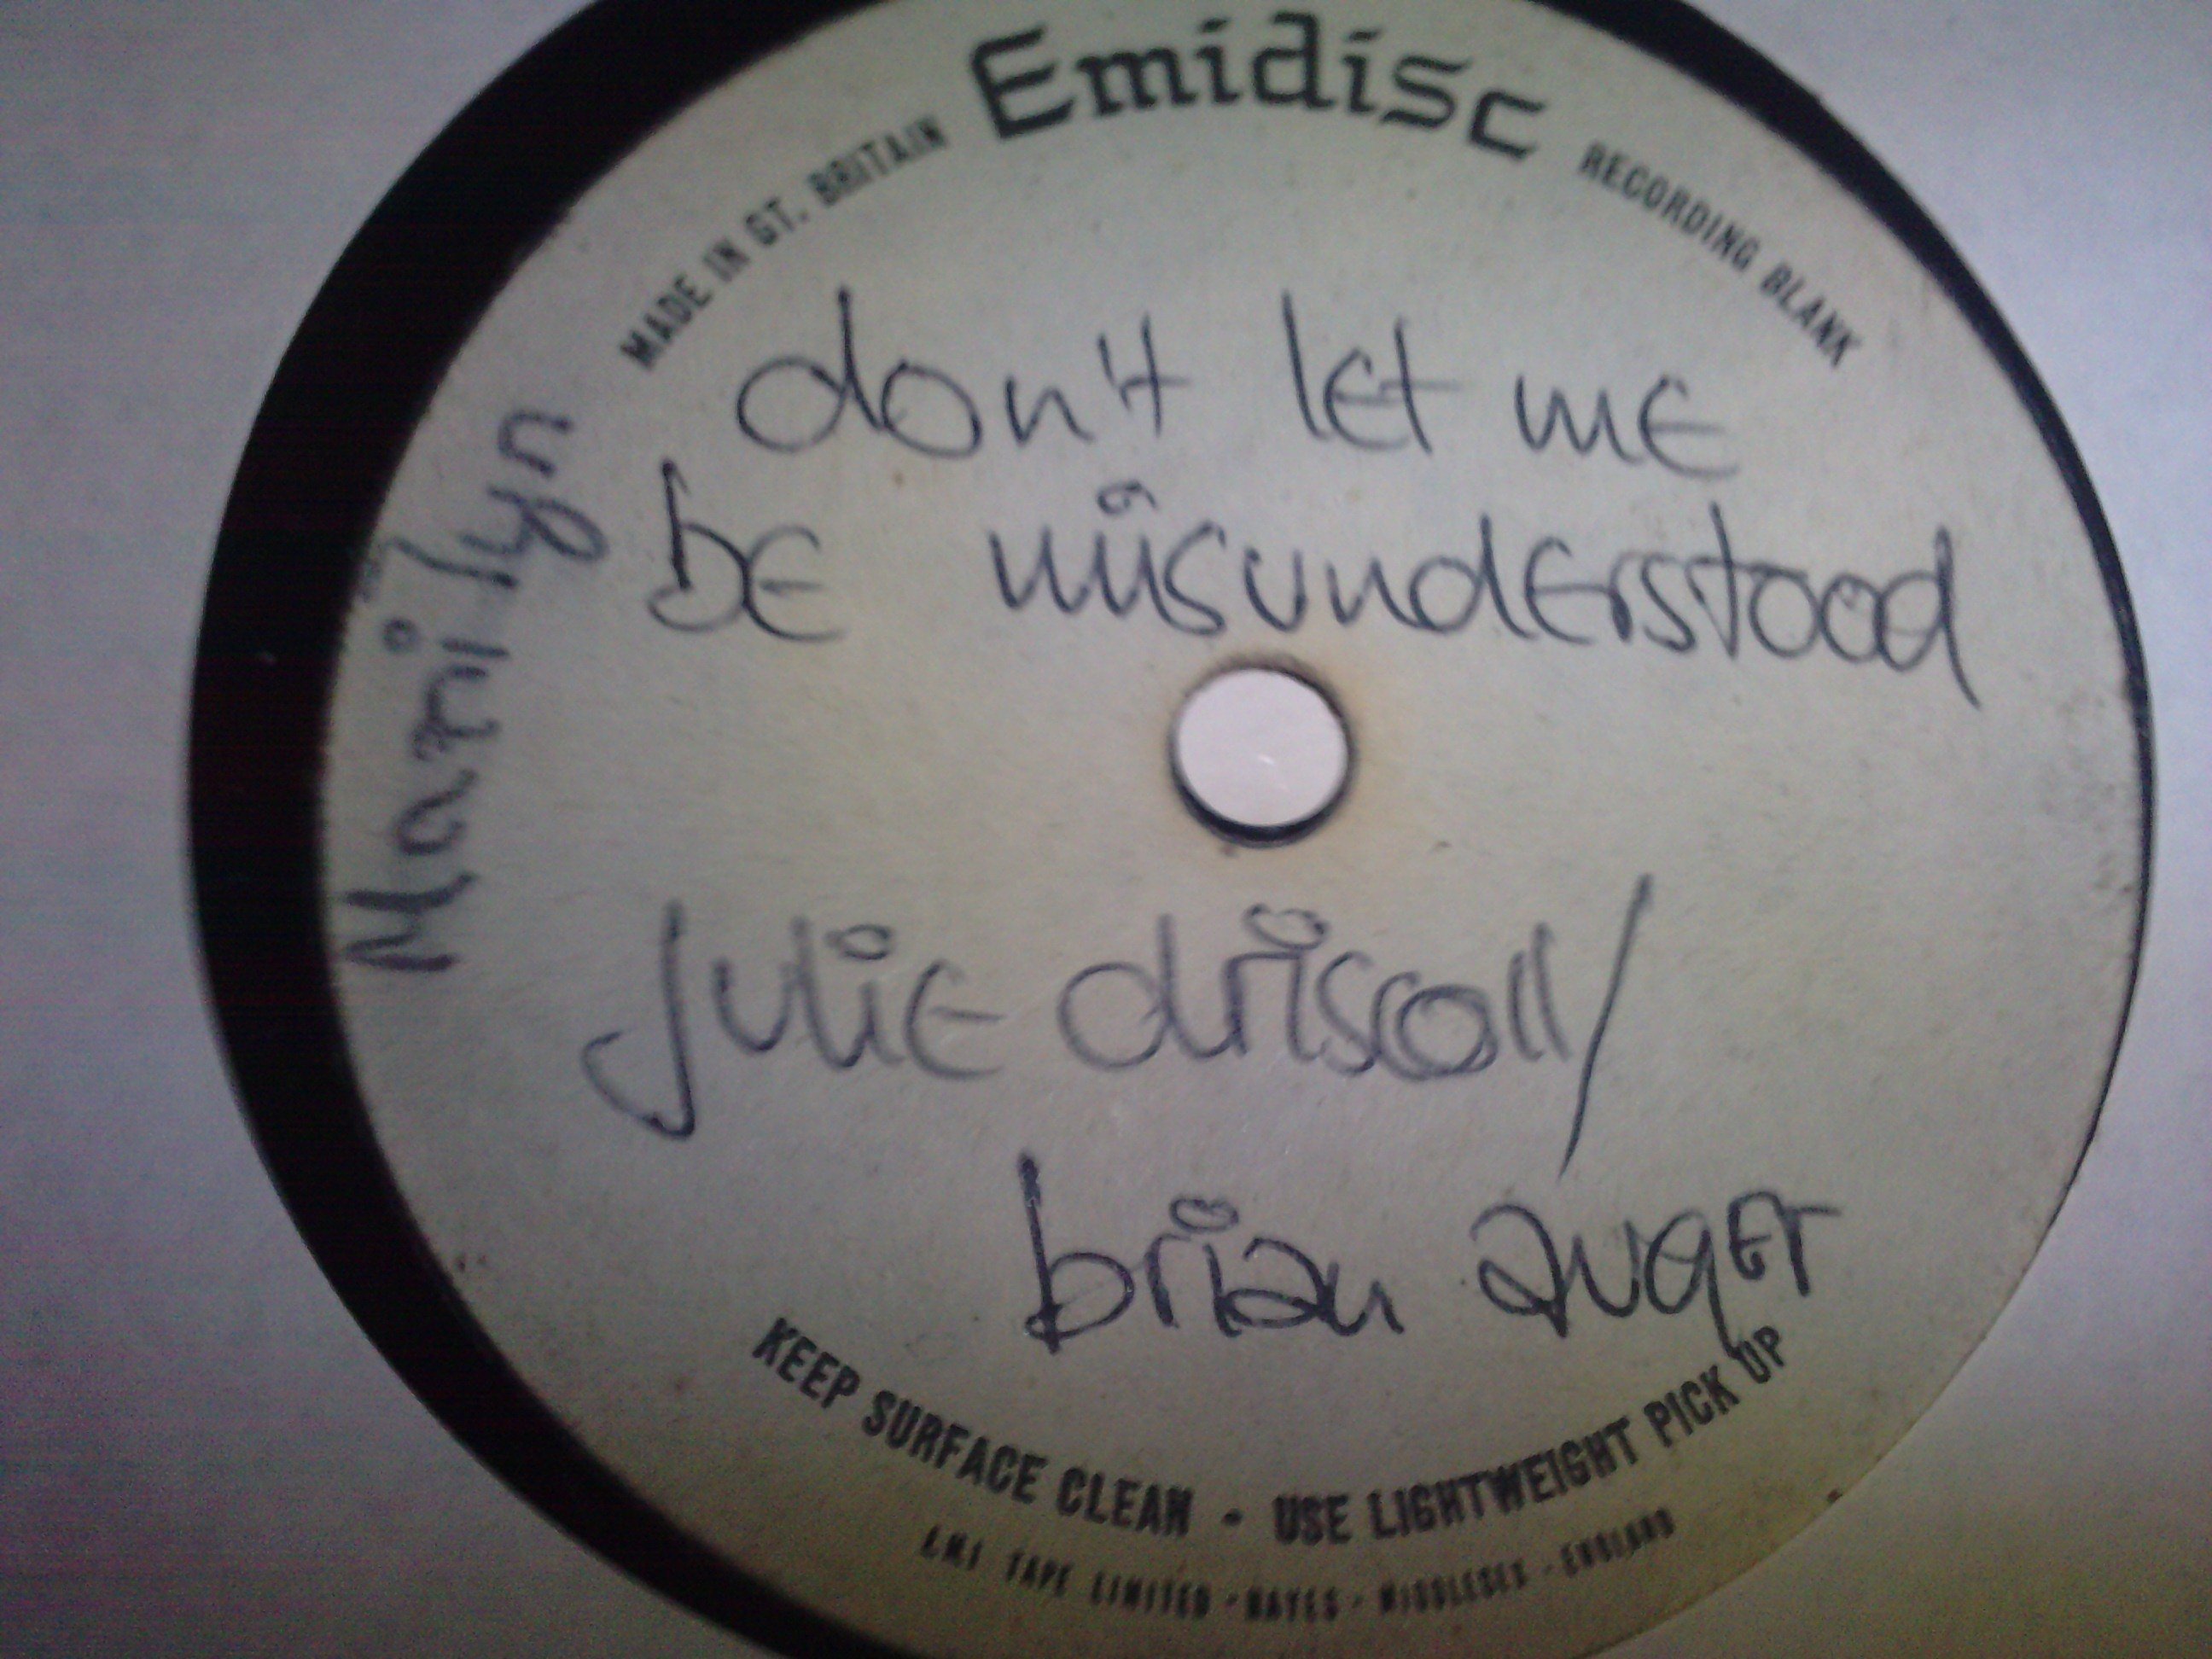 Emidisc
MADE IN GT. BRITAIN
RECORDING BLANK
don't let me
be misunderstood
Marilyn
julie driscoll/
brian auger
KEEP SURFACE CLEAN - USE LIGHTWEIGHT PICK UP
E.M.I TAPE LIMITED · HAYES · MIDDLESEX · ENGLAND